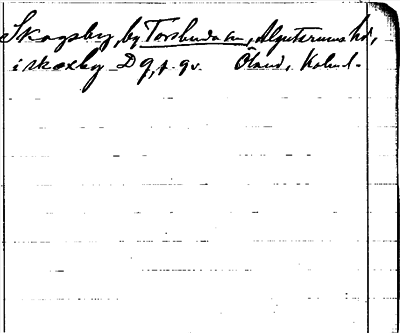 Skogsby, by Torslunda sn, Algutsrums hd,
i skoxby D 9, f. 9v. Öland, Kalm l.